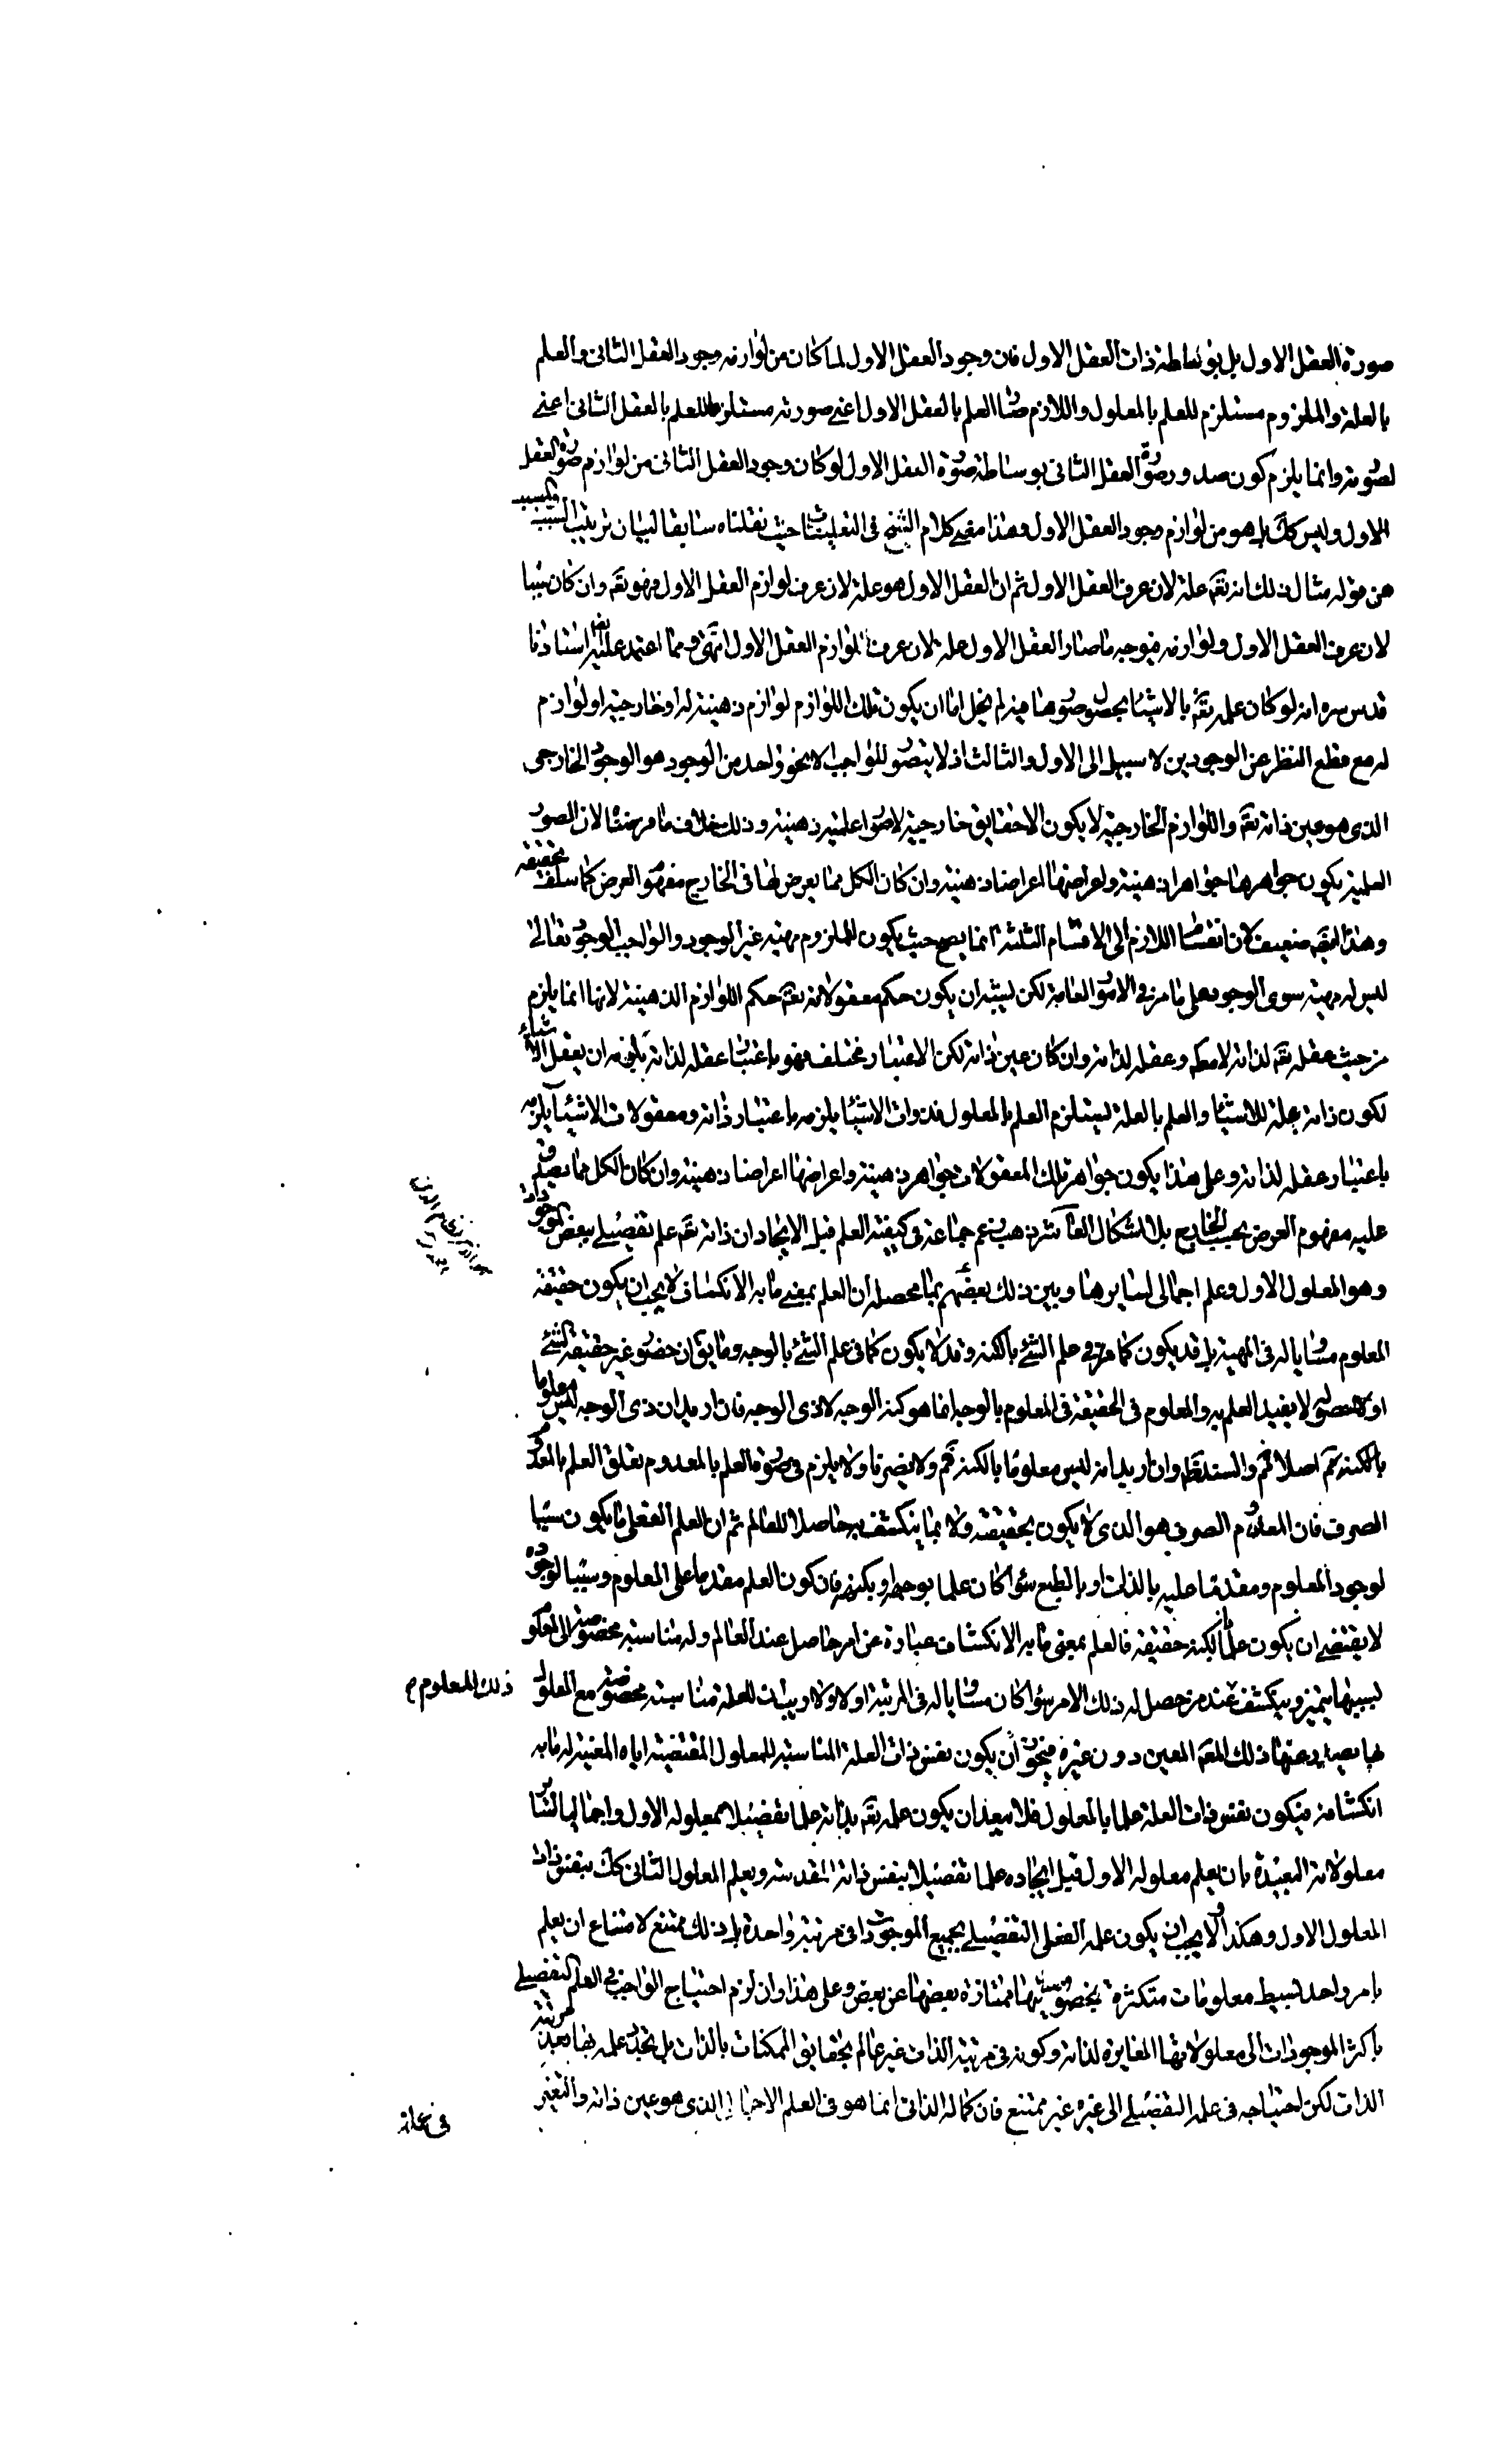 صورة العقل الاول بل بوساطة ذات العقل الاول فان وجود العقل الاول لما كان من لوازمه وجود العقل الثانى والعلم
بالعلة والملزوم مستلزم للعلم بالمعلول واللازم صار العلم بالعقل الاول اعنى صورته مستلزما للعلم بالعقل الثانى اعنى
لصورته وانما يلزم كون صدور صورة العقل الثانى بوساطة صورة العقل الاول لو كان وجود العقل الثانى من لوازم صورة العقل
الاول وليس كك بل هو من لوازم وجود العقل الاول وهذا معنى كلام الشيخ فى التعليقات حيث نقلناه سابقا لبيان ترتيب السبب والمسبب
من قوله مثال ذلك انه تعه علة لان عرف العقل الاول ثم ان العقل الاول هو علة لان عرف لوازم العقل الاول فهو تعه وان كان سببا
لان عرف العقل الاول ولوازمه فبوجه ما صار العقل الاول علة لان عرف لوازم العقل الاول انتهى ومما اعتمد عليه استادنا
قدس سره انه لو كان علمه تعه بالاشيا بحصول صورها فيه لم يخل اما ان يكون تلك اللوازم لوازم ذهنية له او خارجية او لوازم
له مع قطع النظر عن الوجودين لا سبيل الى الاول والثالث اذ لا يتصور للواجب الا نحو واحد من الوجود هو الوجود الخارجى
الذى هو عين ذاته تعه واللوازم الخارجية لا يكون الا حقايق خارجية لا صورا علمية ذهنية وذلك خلاف ما فرضناه لان الصور
العلمية يكون جواهرها جواهر ذهنية واعراضها اعراضا ذهنية وان كان الكل مما يعرض لها فى الخارج مفهوم العرض كما سلف تحقيقه
وهذا ايضه ضعيف لان انقسام اللازم الى الاقسام الثلثة انما يصح حيث يكون للملزوم مهية غير الوجود والواجب الوجود تعالى
ليس له مهية سوى الوجود على ما مر فى الامور العامة لكن يشبه ان يكون حكم معقولاته تعه حكم اللوازم الذهنية لانها انما يلزم
من حيث عقله تعه لذاته لا مطه وعقله لذاته وان كان عين ذاته لكن الاعتبار مختلف فهو باعتبار عقله لذاته يلزمه ان يعقل الاشياء
لكون ذاته علة للاشيا والعلم بالعلة يستلزم العلم بالمعلول فذوات الاشيا يلزمه باعتبار ذاته ومعقولات الاشيا يلزمه
باعتبار عقله لذاته وعلى هذا يكون جواهر تلك المعقولات جواهر ذهنية واعراضها اعراضا ذهنية وان كان الكل مما يصدق
عليه مفهوم العرض بحسب الخارج بلا اشكال العاشر ذهب جماعة فى كيفية العلم قبل الايجاد ان ذاته تعه علم تفصيلى ببعض الموجودات
وهو المعلول الاول وعلم اجمالى لسايرها وبين ذلك بعضهم بما محصله ان العلم بمعنى ما به الانكشاف لا يجب ان يكون حقيقة
المعلوم مساويا له فى المهية بل قد يكون كما مر فى علم الشئ بالكنه وقد لا يكون كما فى علم الشئ بالوجه وما يق ان حضور غير حقيقة الشئ
او حصوله لا يفيد العلم به والمعلوم فى الحقيقة فى المعلوم بالوجه انما هو كنه الوجه لا ذى الوجه فان اريد ان ذى الوجه ليس معلوما
بالكنه ثم اصلا فمم والسند ظه وان اريد انه ليس معلوما بالكنه فمم ولا يضرنا ولا يلزم فى صورة العلم بالمعدوم تعلق العلم بالمعدوم
الصرف فان المعدوم الصرف هو الذى لا يكون بحقيقته ولا بما ينكشف به حاصلا للعالم ثم ان العلم الفعلى ما يكون سببا
لوجود المعلوم ومقدما عليه بالذات او بالطبع سواء كان علما بوجه او بكنهه فان كون العلم مقدما على المعلوم وسببا لوجوده
لا يقتضى ان يكون علما بكنه حقيقته فالعلم بمعنى ما به الانكشاف عبارة عن امر حاصل عند العالم وله مناسبة مخصوصة الى المعلوم
بسببها يتميز وينكشف عند من حصل له ذلك الامر سواء كان مساويا له فى المرتبة او لا ولا ريب ان للعلة مناسبة مخصوصة مع المعلول
ذلك المعلوم م
بها يصدر عنها ذلك المعه المعين دون غيره فيجوز ان يكون نفس ذات العلة المناسبة للمعلول المقتضية اياه المعينة له ما به
انكشافه فيكون نفس ذات العلة علما بالمعلول فلا بعد ان يكون علمه تعه بذاته علما تفصيلا بمعلوله الاول واجماليا لساير
معلولاته البعيدة بان يعلم معلوله الاول قبل ايجاده علما تفصيلا بنفس ذاته المقدسة ويعلم المعلول الثانى كك بنفس ذات
المعلول الاول وهكذا ولا يجب ان يكون علمه الفعلى التفصيلى بجميع الموجودات فى مرتبة واحدة بل ذلك ممتنع لامتناع ان يعلم
بامر واحد بسيط معلومات متكثرة بخصوصياتها ممتازة بعضها عن بعض وعلى هذا وان لزم احتياج الواجب فى العلم التفصيلى
باكثر الموجودات الى معلولاتها المغايرة لذاته وكونه فى مرتبة الذات غير عالم بحقايق الممكنات بالذات بل تجدد علمه بها بعد مرتبة
الذات لكن احتياجه فى علمه التفصيلى الى غيره غير ممتنع فان كماله الذاتى انما هو فى العلم الاجمالى الذى هو عين ذاته والتغير
فى علمه